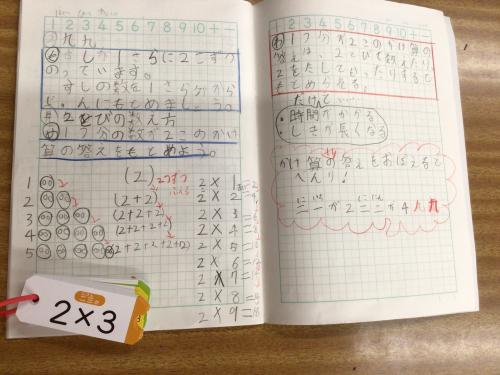 1 2 3 4 5 6 7 8 9 10 + −
九九
も すしが 1さらに2こずつ
のっています。
すしの数を1さら分から
じゅんにもとめましょう。
2とびの数え方
め 1つ分の数が2このかけ
算の答えをもとめよう。
1 (2) 2つずつ ふえる 2×1=2
2 (2+2) 2×2=4
3 (2+2+2) 2×3=6
4 (2+2+2+2) 2×4=8
5 (2+2+2+2+2) 2×5=10
2×6=12
2×7=
2×8=
2×9=18
2×3
1 2 3 4 5 6 7 8 9 10 + −
1つ分が2このかけ算の
答えは、2とびで数えたり、
2をたしていったりすると
もとめられる。
たけど…
・時間がかかる
・しきが長くなる
かけ算の答えをおぼえると
べんり!
二一が2 二二が4 九九